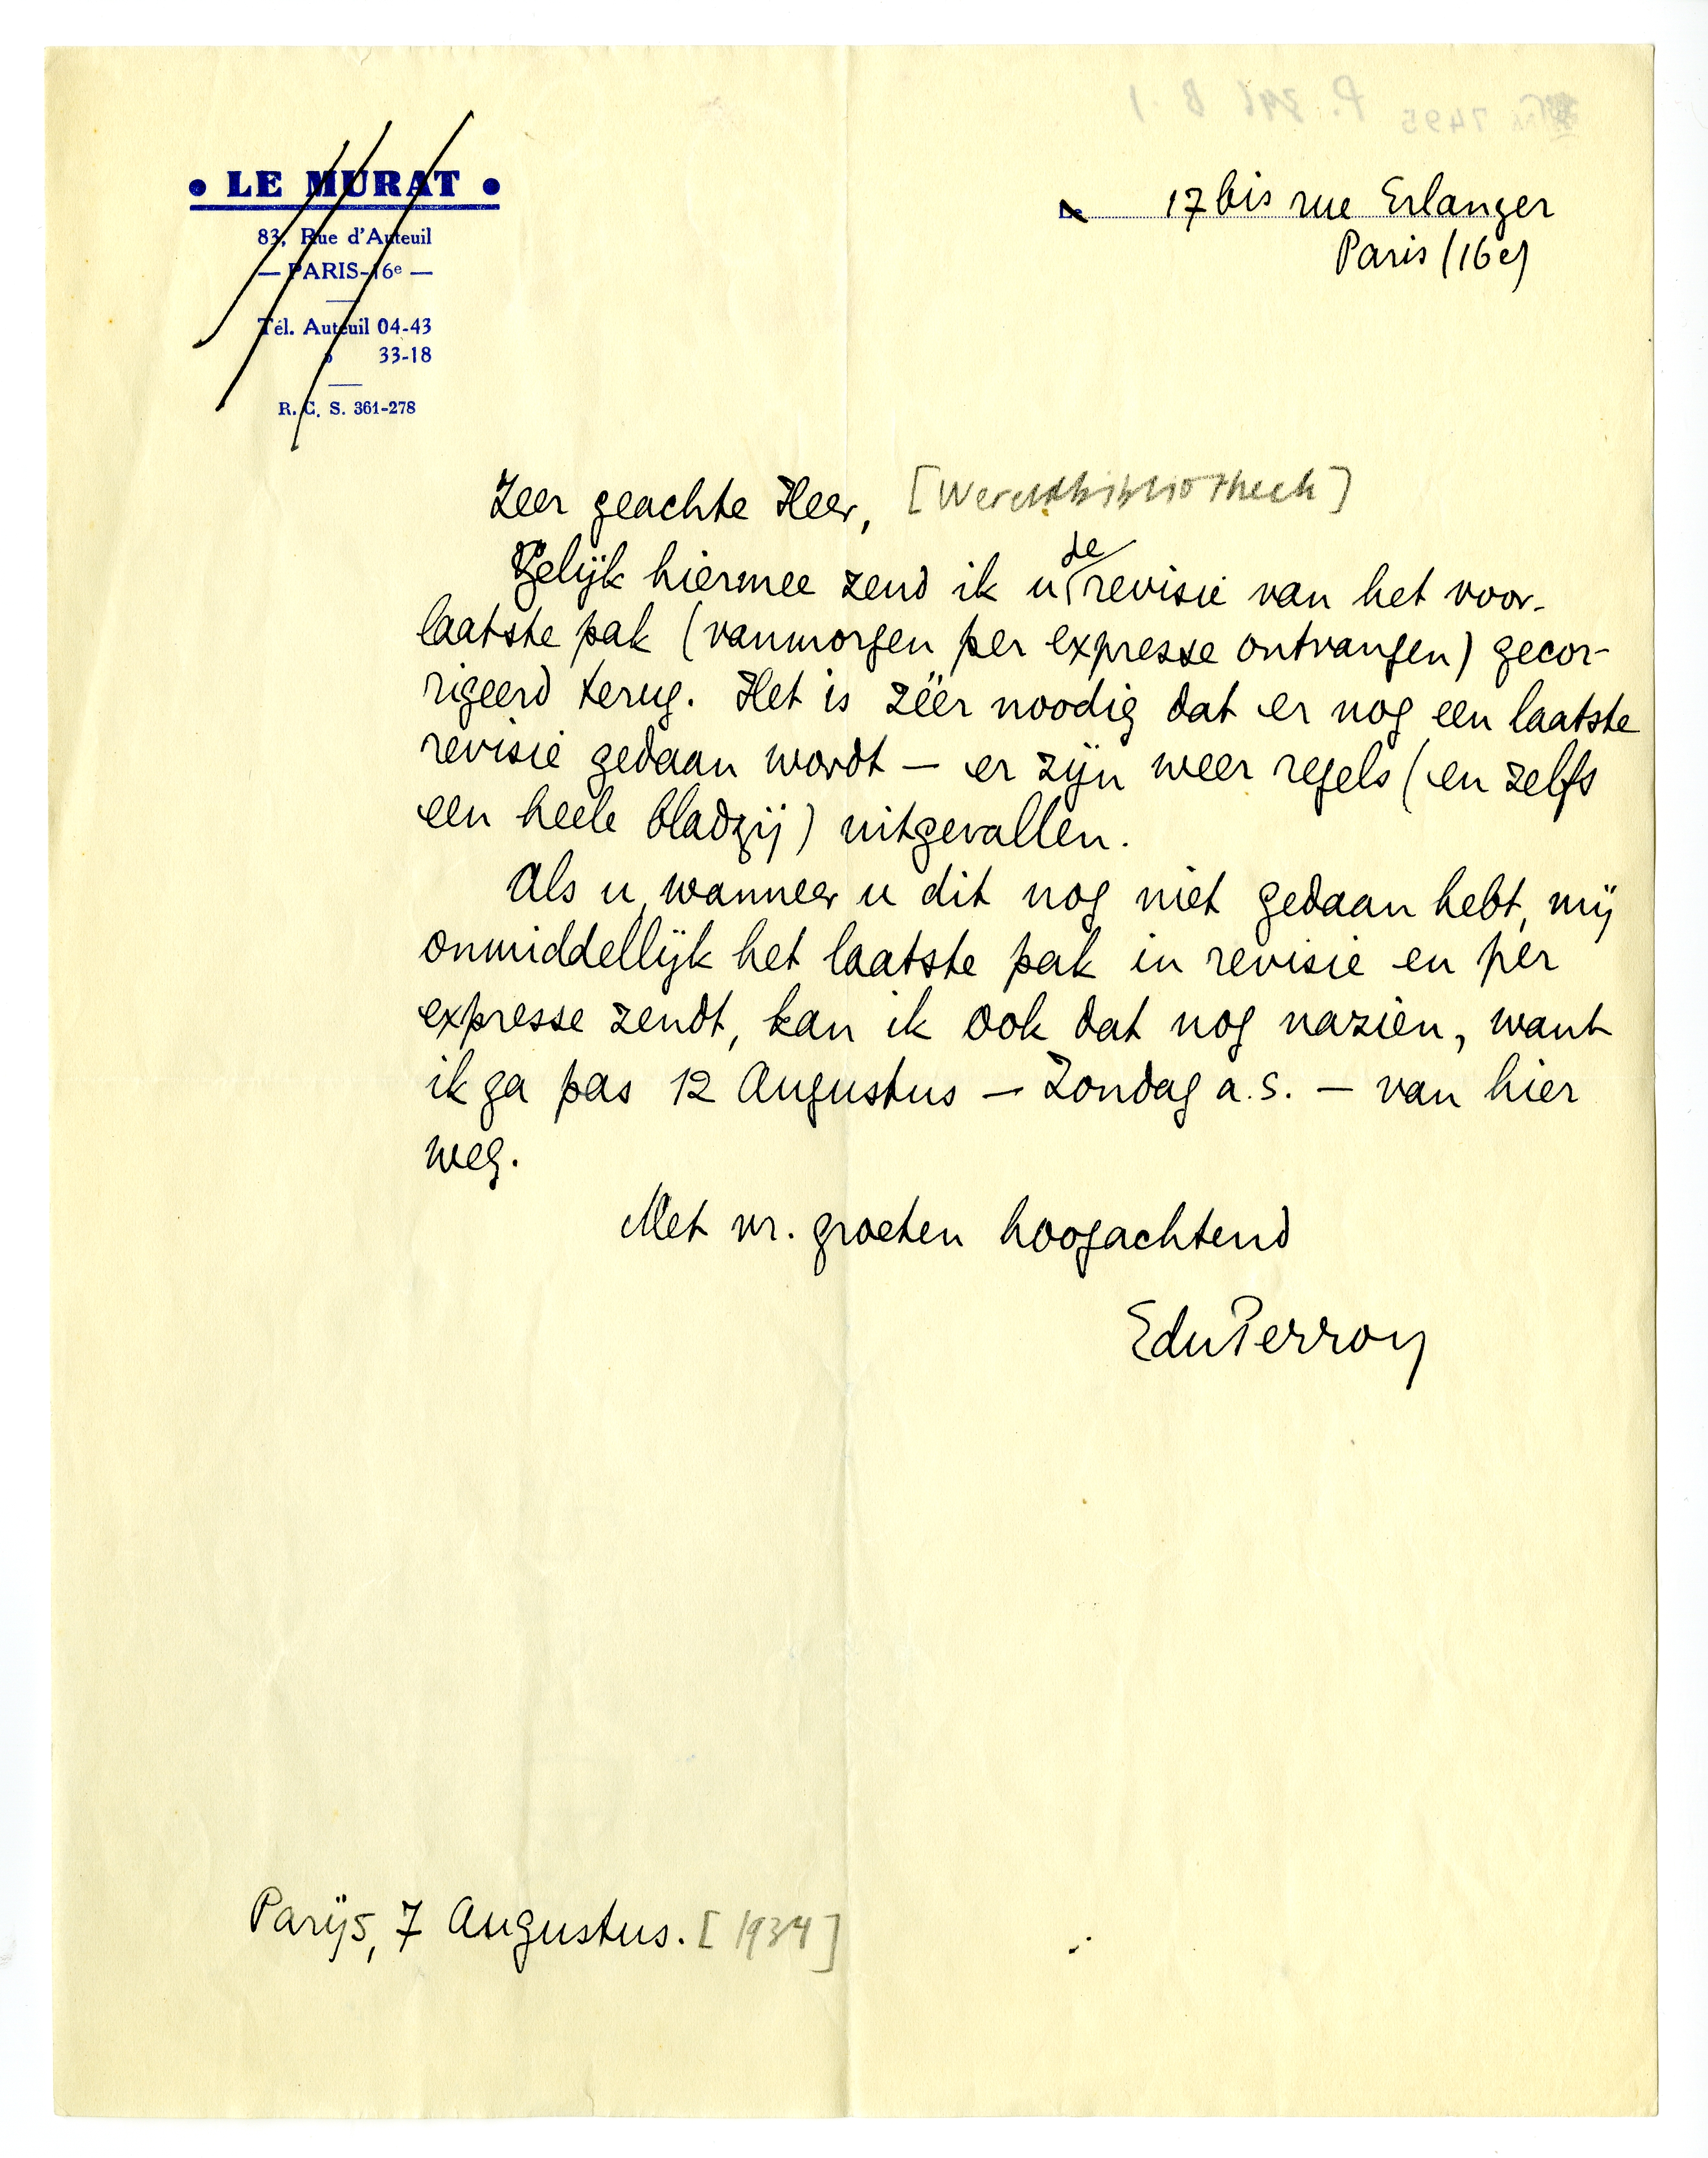 • LE MURAT •
83, Rue d'Auteuil
— PARIS-16e —
Tél. Auteuil 04-43
» 33-18
R. C. S. 361-278
Le 17 bis rue Erlanger
Paris (16e)
Zeer geachte Heer, [Wereldbibliotheek]
Gelijk hiermee zend ik u de revisie van het voor-
laatste pak (vanmorgen per expresse ontvangen) gecor-
rigeerd terug. Het is zéér noodig dat er nog een laatste
revisie gedaan wordt — er zijn weer regels (en zelfs
een heele bladzij) uitgevallen.
Als u, wanneer u dit nog niet gedaan hebt, mij
onmiddellijk het laatste pak in revisie en per
expresse zendt, kan ik ook dat nog nazien, want
ik ga pas 12 Augustus — Zondag a.s. — van hier
weg.
Met vr. groeten hoogachtend
EduPerron
Parijs, 7 Augustus. [1934]